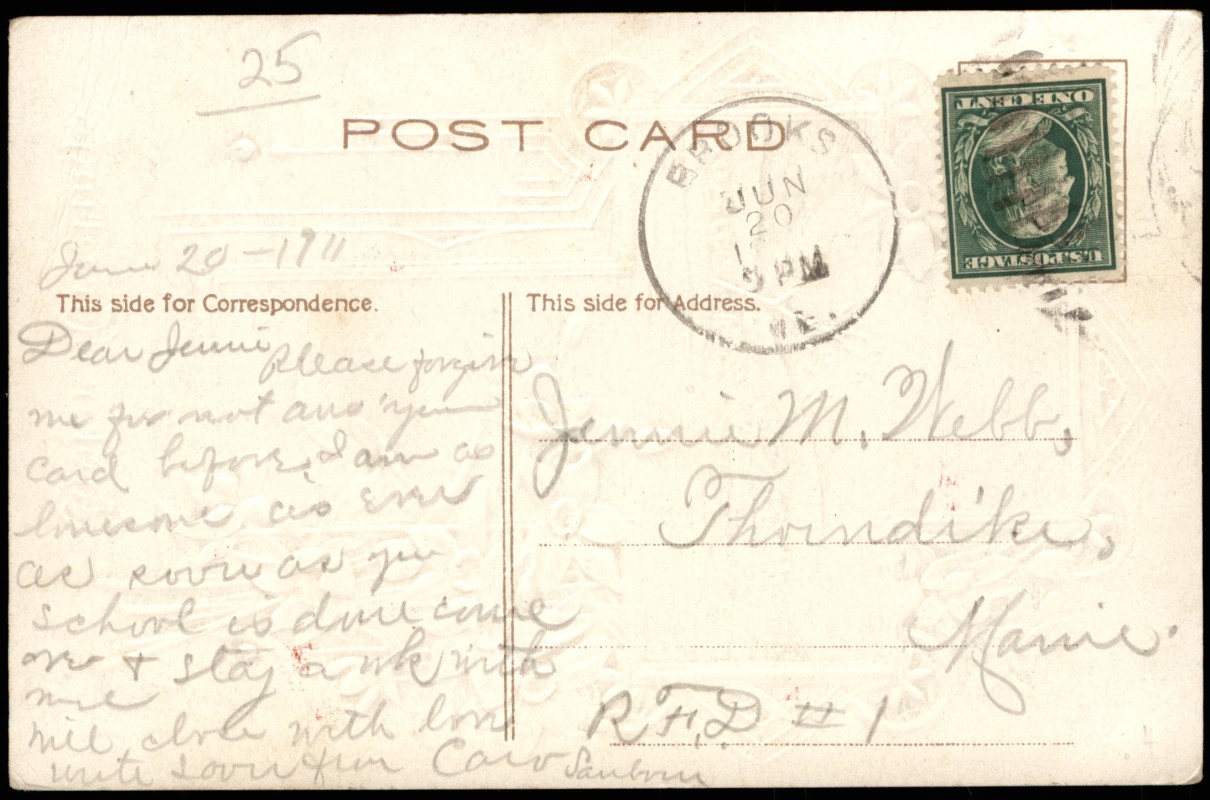 25
POST CARD
BROOKS
JUN
20
5 PM
ME.
ONE CENT
U.S. POSTAGE
June 20-1911
This side for Correspondence.
Dear Jennie please forgive
me for not ans' your
card before, I am as
lonesome as ever
as soon as you
school is done come
over + stay a wk with
me
will close with love
write soon from Caro Sanborn
This side for Address.
Jennie M. Webb,
Thorndike,
Maine.
R.F.D # 1